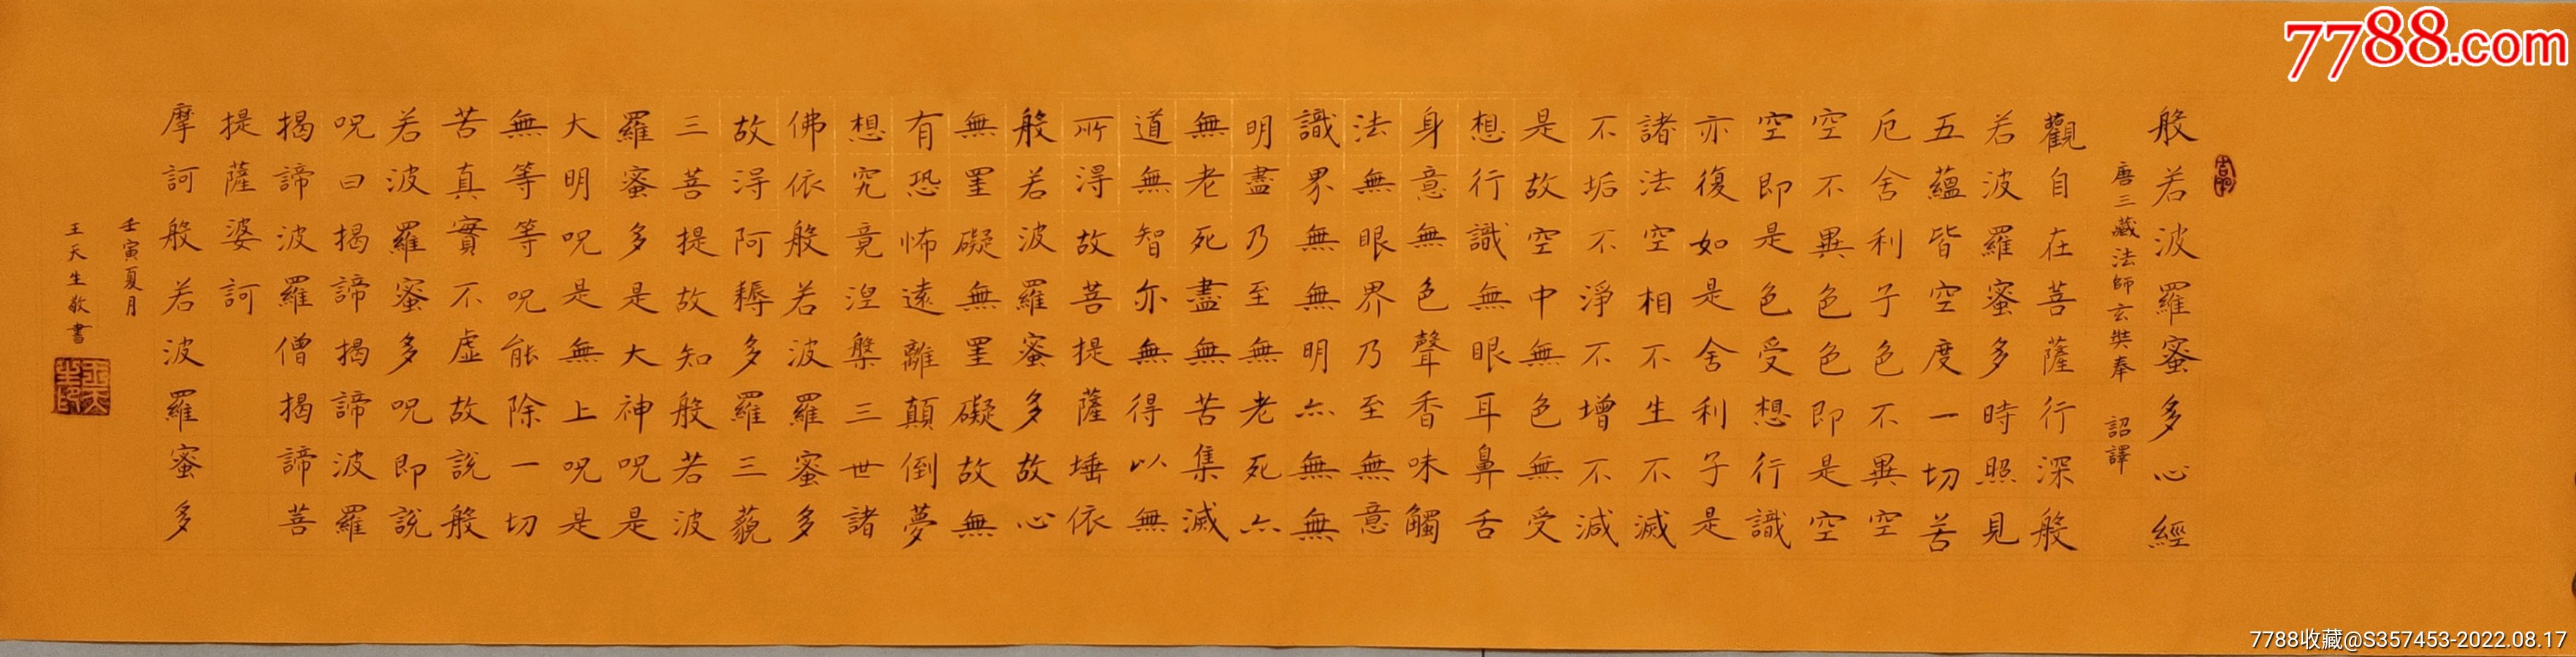 般若波羅蜜多心經
唐三藏法師玄奘奉 詔譯
觀自在菩薩行深般
若波羅蜜多時照見
五蘊皆空度一切苦
厄舍利子色不異空
空不異色色即是空
空即是色受想行識
亦復如是舍利子是
諸法空相不生不滅
不垢不淨不增不減
是故空中無色無受
想行識無眼耳鼻舌
身意無色聲香味觸
法無眼界乃至無意
識界無無明亦無無
明盡乃至無老死亦
無老死盡無苦集滅
道無智亦無得以無
所得故菩提薩埵依
般若波羅蜜多故心
無罣礙無罣礙故無
有恐怖遠離顛倒夢
想究竟涅槃三世諸
佛依般若波羅蜜多
故得阿耨多羅三藐
三菩提故知般若波
羅蜜多是大神呪是
大明呪是無上呪是
無等等呪能除一切
苦真實不虛故說般
若波羅蜜多呪即說
呪曰揭諦揭諦波羅
揭諦波羅僧揭諦菩
提薩婆訶
摩訶般若波羅蜜多
壬寅夏月
王天生敬書
7788.com
7788收藏@S357453-2022.08.17